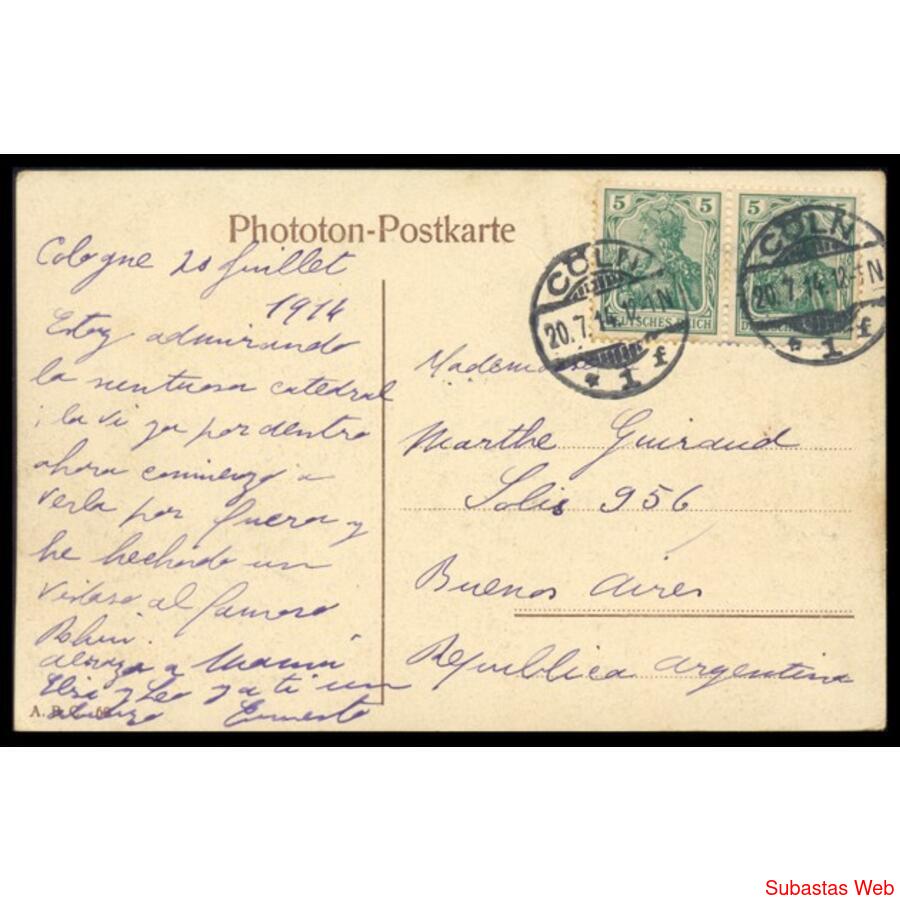 Phototon-Postkarte
Cologne 20 Juillet
1914
Estoy admirando
la suntuosa catedral
; la vi ya por dentro
ahora comienzo a
verla por fuera y
he hechado un
vistaso al famoso
Rhin.
abraza a Mamá
Elsa y Leo y a ti un
abrazo Ernesto
A.
5 5
DEUTSCHES REICH
5 5
CÖLN
20.7.14.12-1N
* 1 f
CÖLN
20.7.14.12-1N
* 1 f
Marthe Guiraud
Solis 956
Buenos Aires
Republica Argentina
Subastas Web